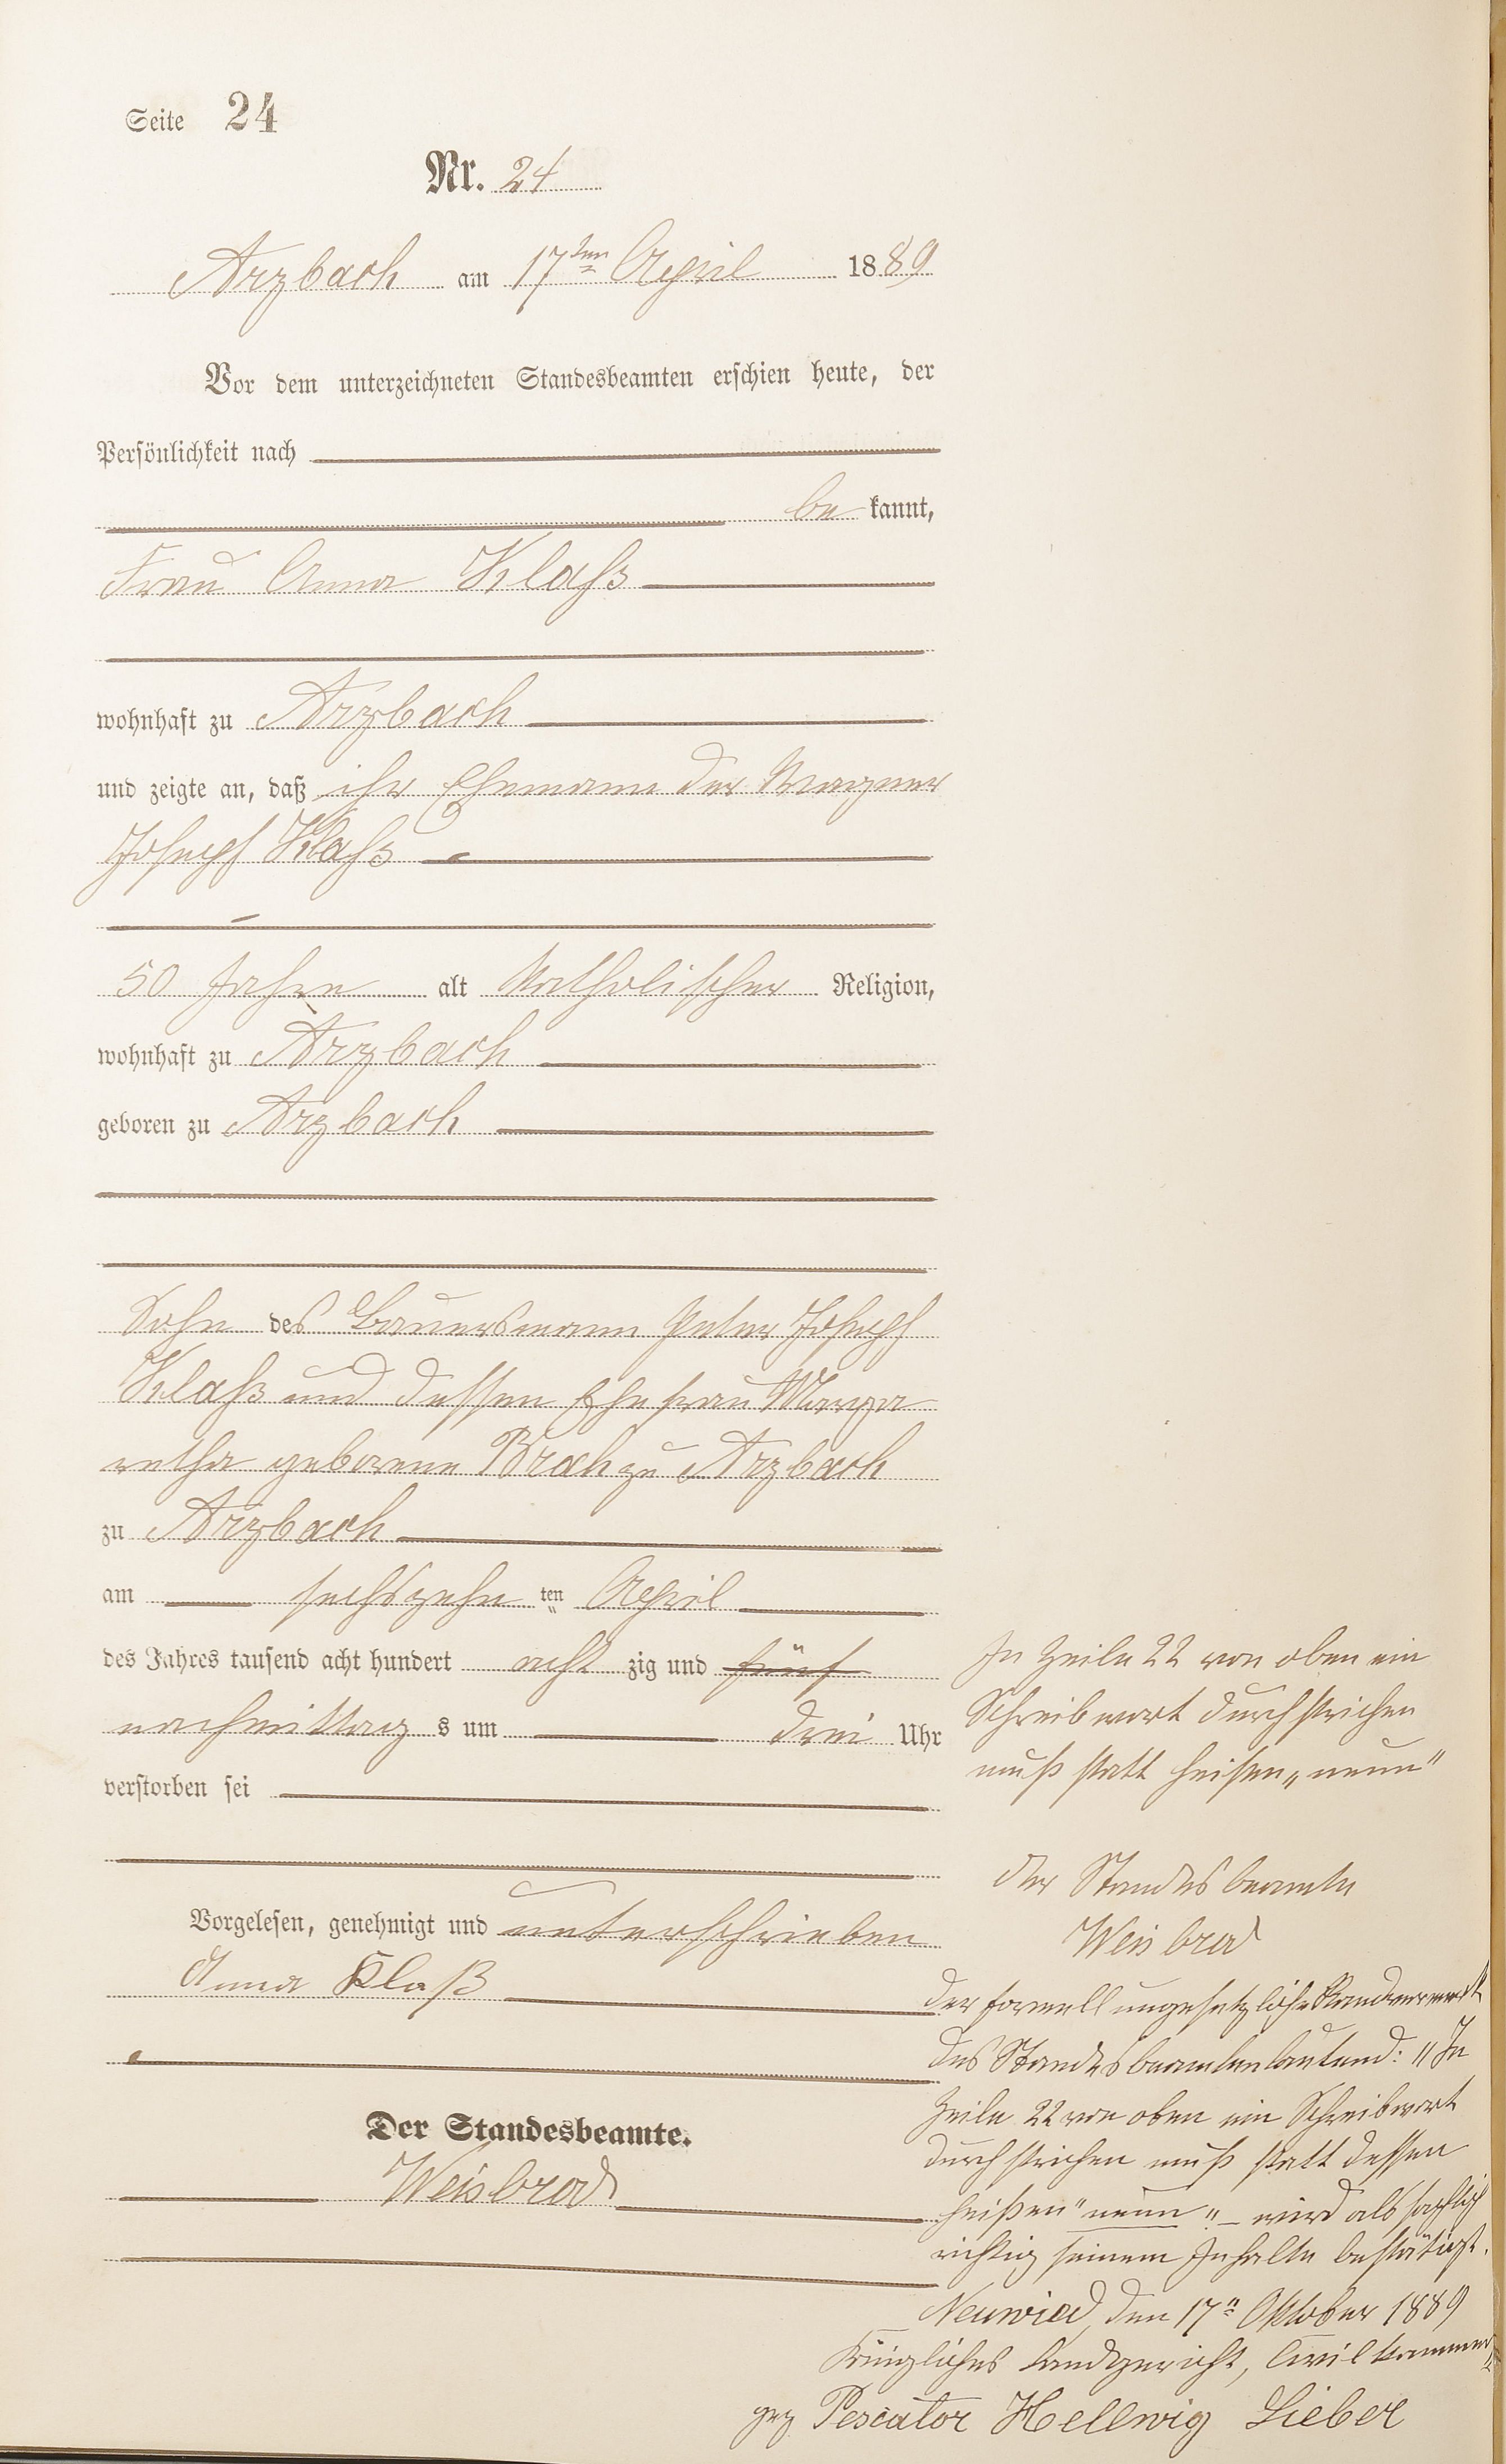 Seite 24
Nr. 24
Arzbach am 17ten April 1889
Vor dem unterzeichneten Standesbeamten erschien heute, der
Persönlichkeit nach
bekannt,
Frau Anna Klaß
wohnhaft zu Arzbach
und zeigte an, daß ihr Ehemann der Wagner
Joseph Klaß
50 Jahre alt katholischer Religion,
wohnhaft zu Arzbach
geboren zu Arzbach
Sohn des Bauersmann Peter Joseph
Klaß und dessen Ehefrau Marga
retha geborene Brah zu Arzbach
zu Arzbach
am sechszehnten April
des Jahres tausend acht hundert achtzig und fünf
nachmittags um drei Uhr
verstorben sei
Vorgelesen, genehmigt und unterschrieben
Anna Klaß
Der Standesbeamte.
Weisbrod
In Zeile 22 von oben ein
Schreibwort durchstrichen
muß statt heisen „neun"
Der Standesbeamte
Weisbrod
Der formell ungesetzliche Randvermerk
des Standesbeamten lautend: „In
Zeile 22 von oben ein Schreibwort
durchstrichen muß statt dessen
heißen "neun" – wird als sachlich
richtig seinem Inhalte bestätigt.
Neuwied, den 17n Oktober 1889
Königliches Landgericht, Civilkammer
gez Pescator Hellwig Lieber